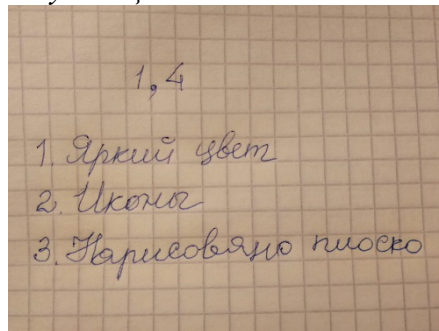 1,4
1. Яркий цвет
2. Иконы
3. Нарисовяно плоско